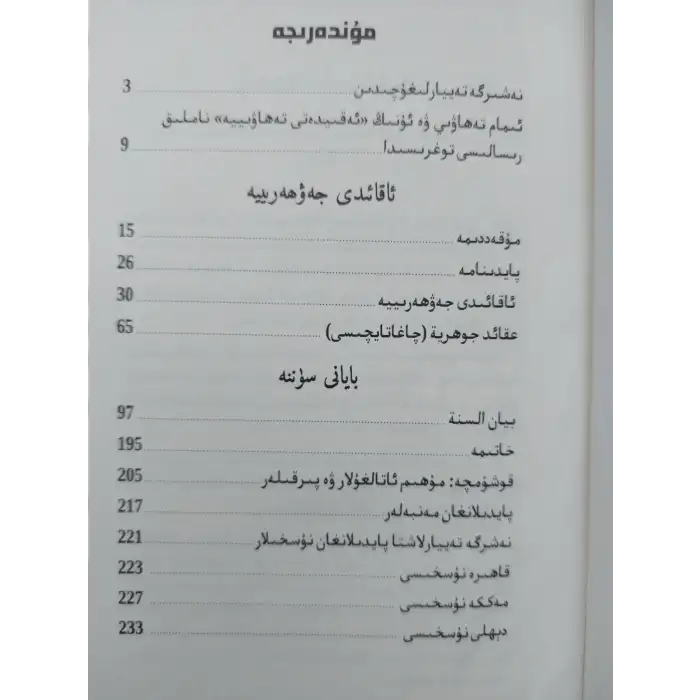 مۇندەرىجە
نەشىرگە تەييارلىغۇچىدىن 3
ئىمام تەھاۋىي ۋە ئۇنىڭ «ئەقىيدەتى تەھاۋىييە» ناملىق
رىسالىسى توغرىسىدا 9
ئاقائىدى جەۋھەرىييە
مۇقەددىمە 15
پايدىنامە 26
ئاقائىدى جەۋھەرىييە 30
عقائد جوهرية (چاغاتايچىسى) 65
بايانى سۈننە
بيان السنة 97
خاتىمە 195
قوشۇمچە: مۇھىم ئاتالغۇلار ۋە پىرقىلەر 205
پايدىلانغان مەنبەلەر 217
نەشرگە تەييارلاشتا پايدىلانغان نۇسخىلار 221
قاھىرە نۇسخىسى 223
مەككە نۇسخىسى 227
دېھلى نۇسخىسى 233